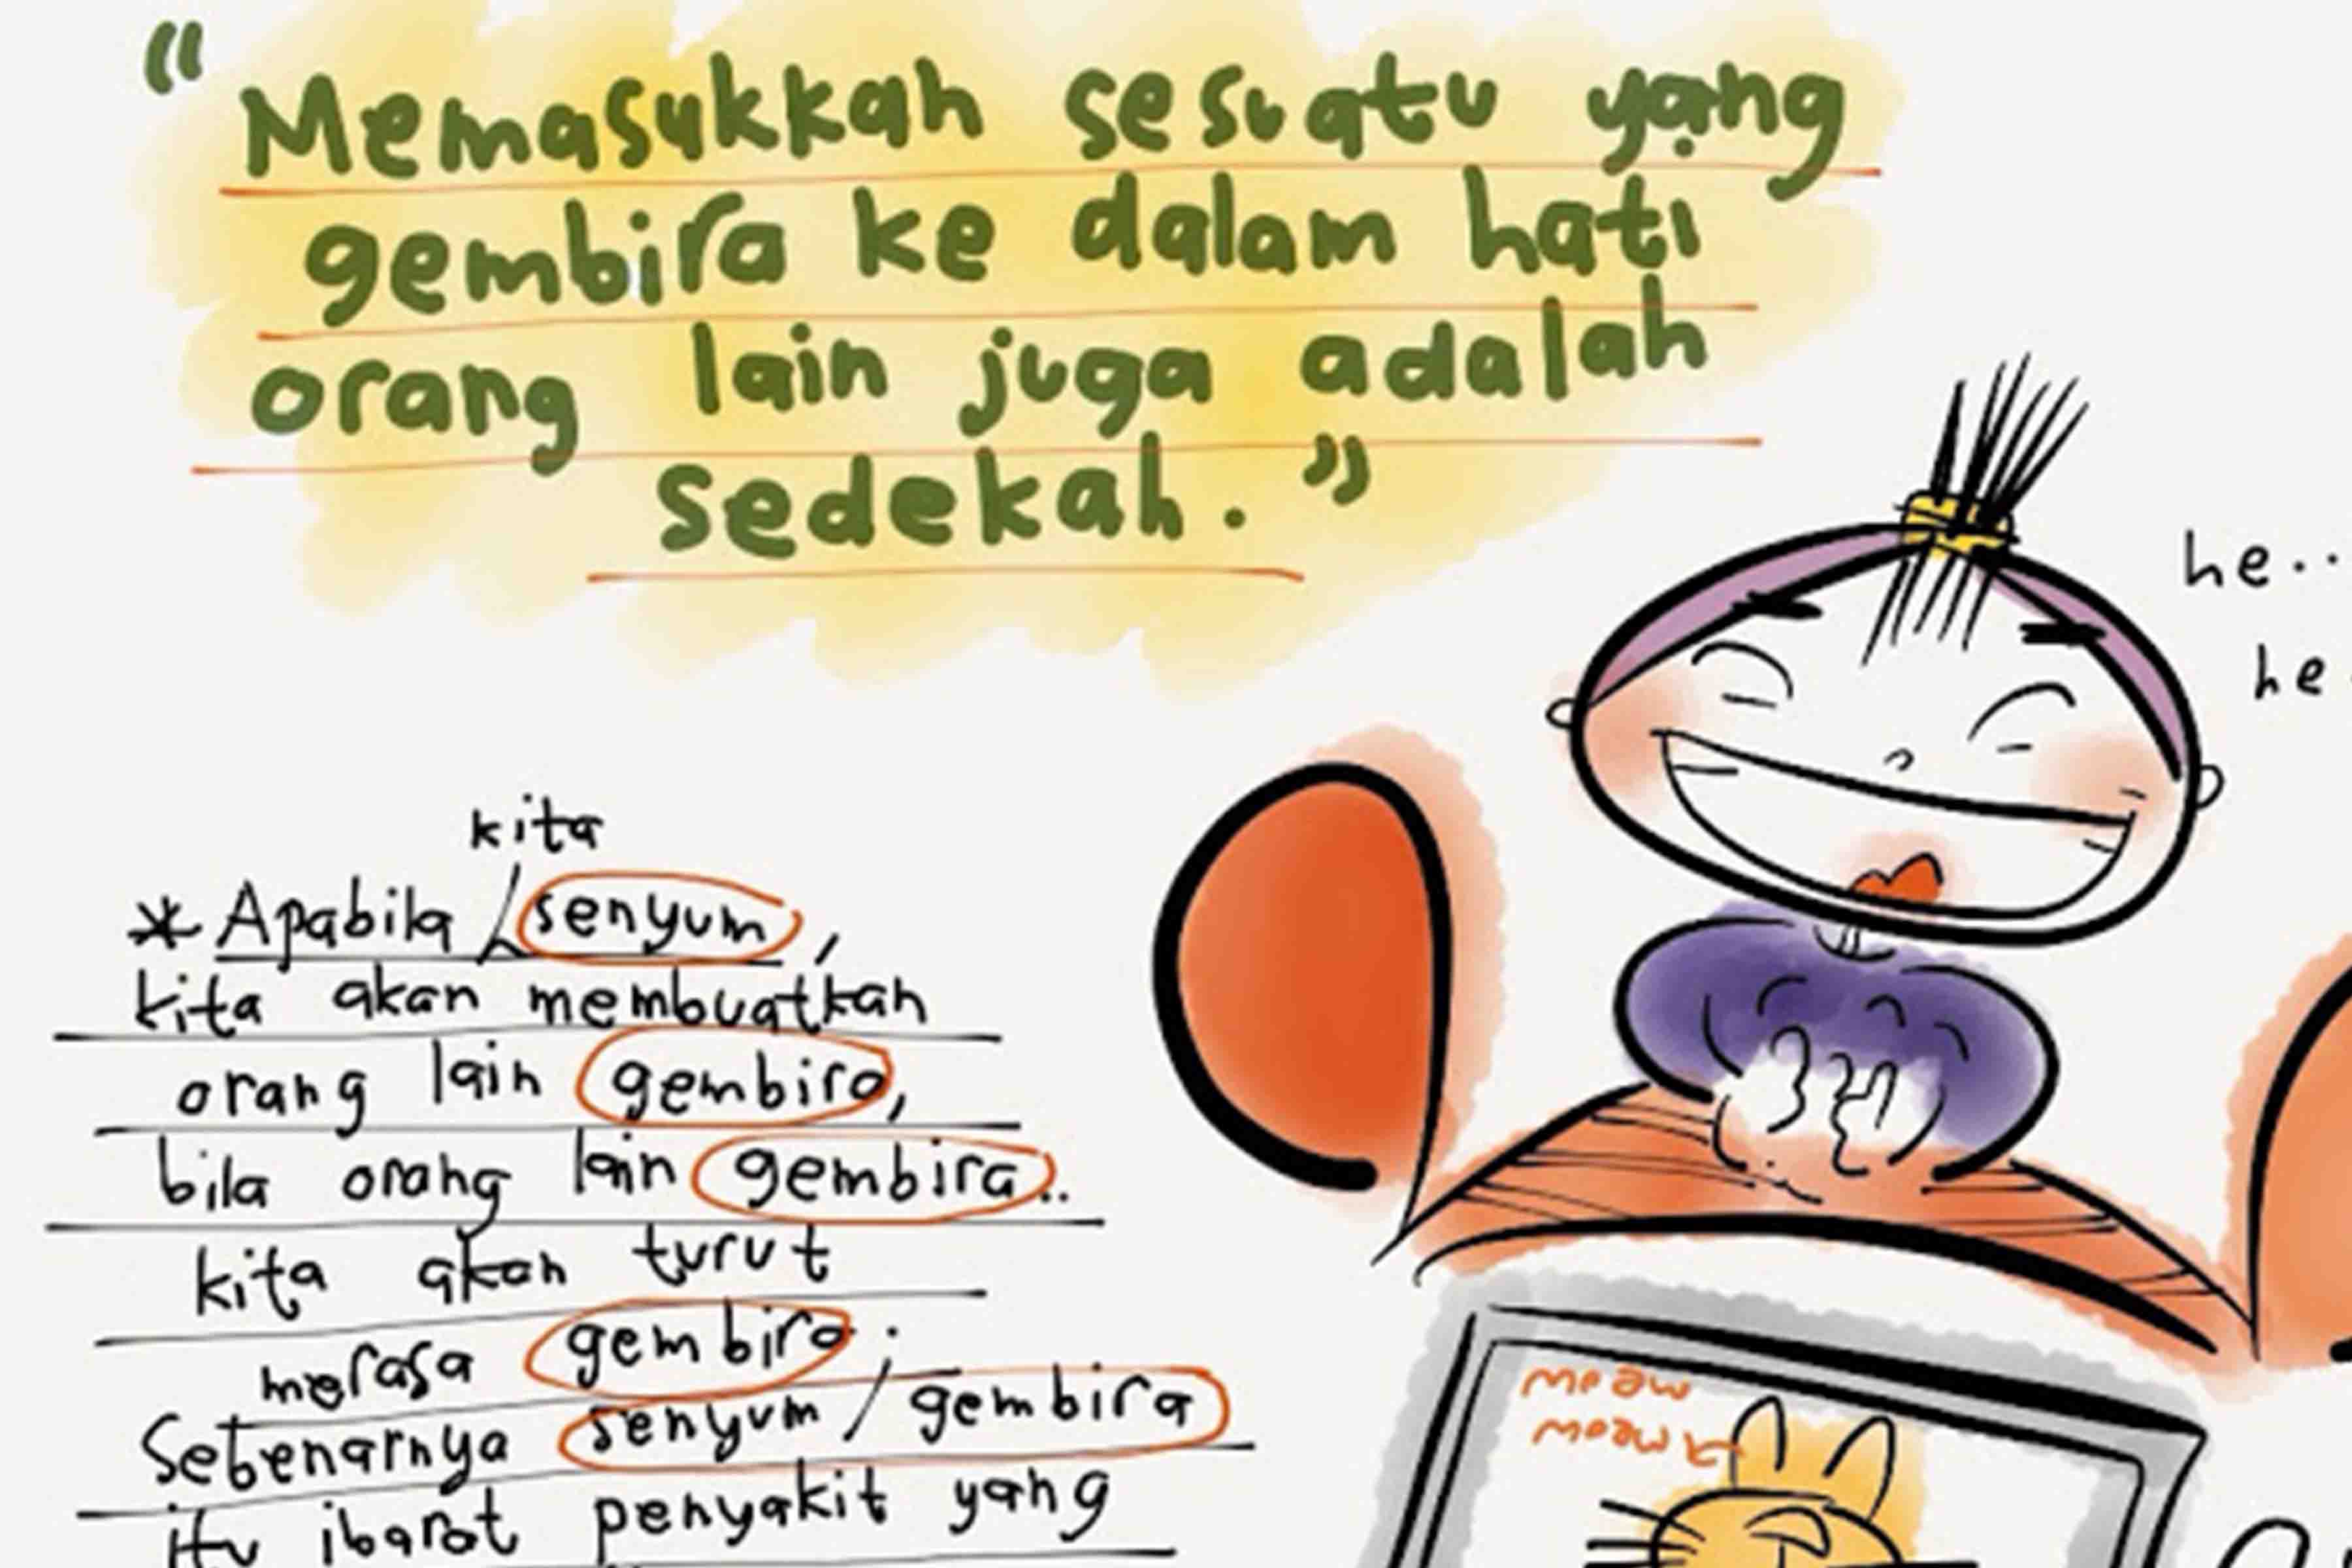 "Memasukkah sesuatu yang
gembira ke dalam hati
orang lain juga adalah
sedekah."
he..
he.
kita
* Apabila senyum,
kita akan membuatkan
orang lain gembira,
bila orang lain gembira..
kita akan turut
merasa gembira.
Sebenarnya senyum / gembira
itu ibarat penyakit yang
meaw
meaw